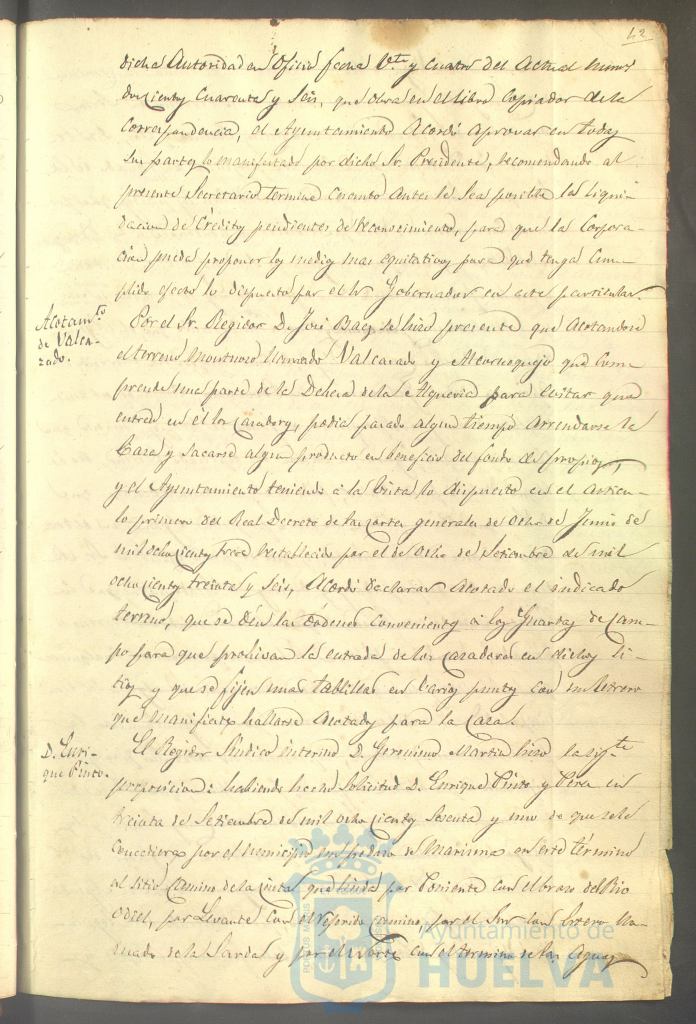 42
dicha Autoridad en Oficio fecha Vte. y cuatro del actual numo.
doscientos Cuarenta y Seis, que obra en el libro Copiador de la
Correspondencia, el Ayuntamiento Acordó aprovar en todas
sus partes lo manifestado por dicho Sr. Presidente, recomendando al
presente Secretario termine cuanto antes le sea posible la liqui-
dacion de Créditos pendientes de reconocimiento, para que la Corpora-
cion pueda proponer los medios mas equitativos para que tenga Cum-
plido efecto lo dispuesto por el Sr. Gobernador en este particular.
Acotamto.
de Valca-
zado.
Por el Sr. Regidor D. José Baez se hizo presente que acotandose
el terreno montuoso llamado Valcazado y Alcornoquejo que Com-
prende una parte de la Dehesa de la Alqueria para evitar que
entren en él los Cazadores, podia pasado algun tiempo arrendarse la
Caza y sacarse algun producto en beneficio del fondo de propios,
y el Ayuntamiento teniendo á la vista lo dispuesto en el articu-
lo primero del Real Decreto de las Cortes generales de Ocho de Junio de
mil ochocientos trece restablecido por el de Ocho de Setiembre de mil
ochocientos treinta y seis, Acordó declarar acotado el indicado
terreno, que se dén las órdenes convenientes á los Guardas de Cam-
po para que prohivan la entrada de los Cazadores en dichos Si-
tios y que se fijen unas tablillas en varios puntos con un letrero
que manifieste hallarse acotados para la Caza.
D. Enri-
que Pinto.
El Regidor Sindico interino D. Geronimo Martin hizo la sigte.
proposicion: habiendo hecho solicitud D. Enrique Pinto y Pera en
treinta de Setiembre de mil ochocientos sesenta y uno de que se le
concediera por el municipio un pedazo de Marisma en este término
al sitio Camino de la Cinta que linda por Poniente con el brazo del Rio
Odiel, por Levante con el referido Camino, por el Sur con Estero lla-
mado de la Sardas y por el Norte con el termino de las Aguas
Ayuntamiento de
HUELVA